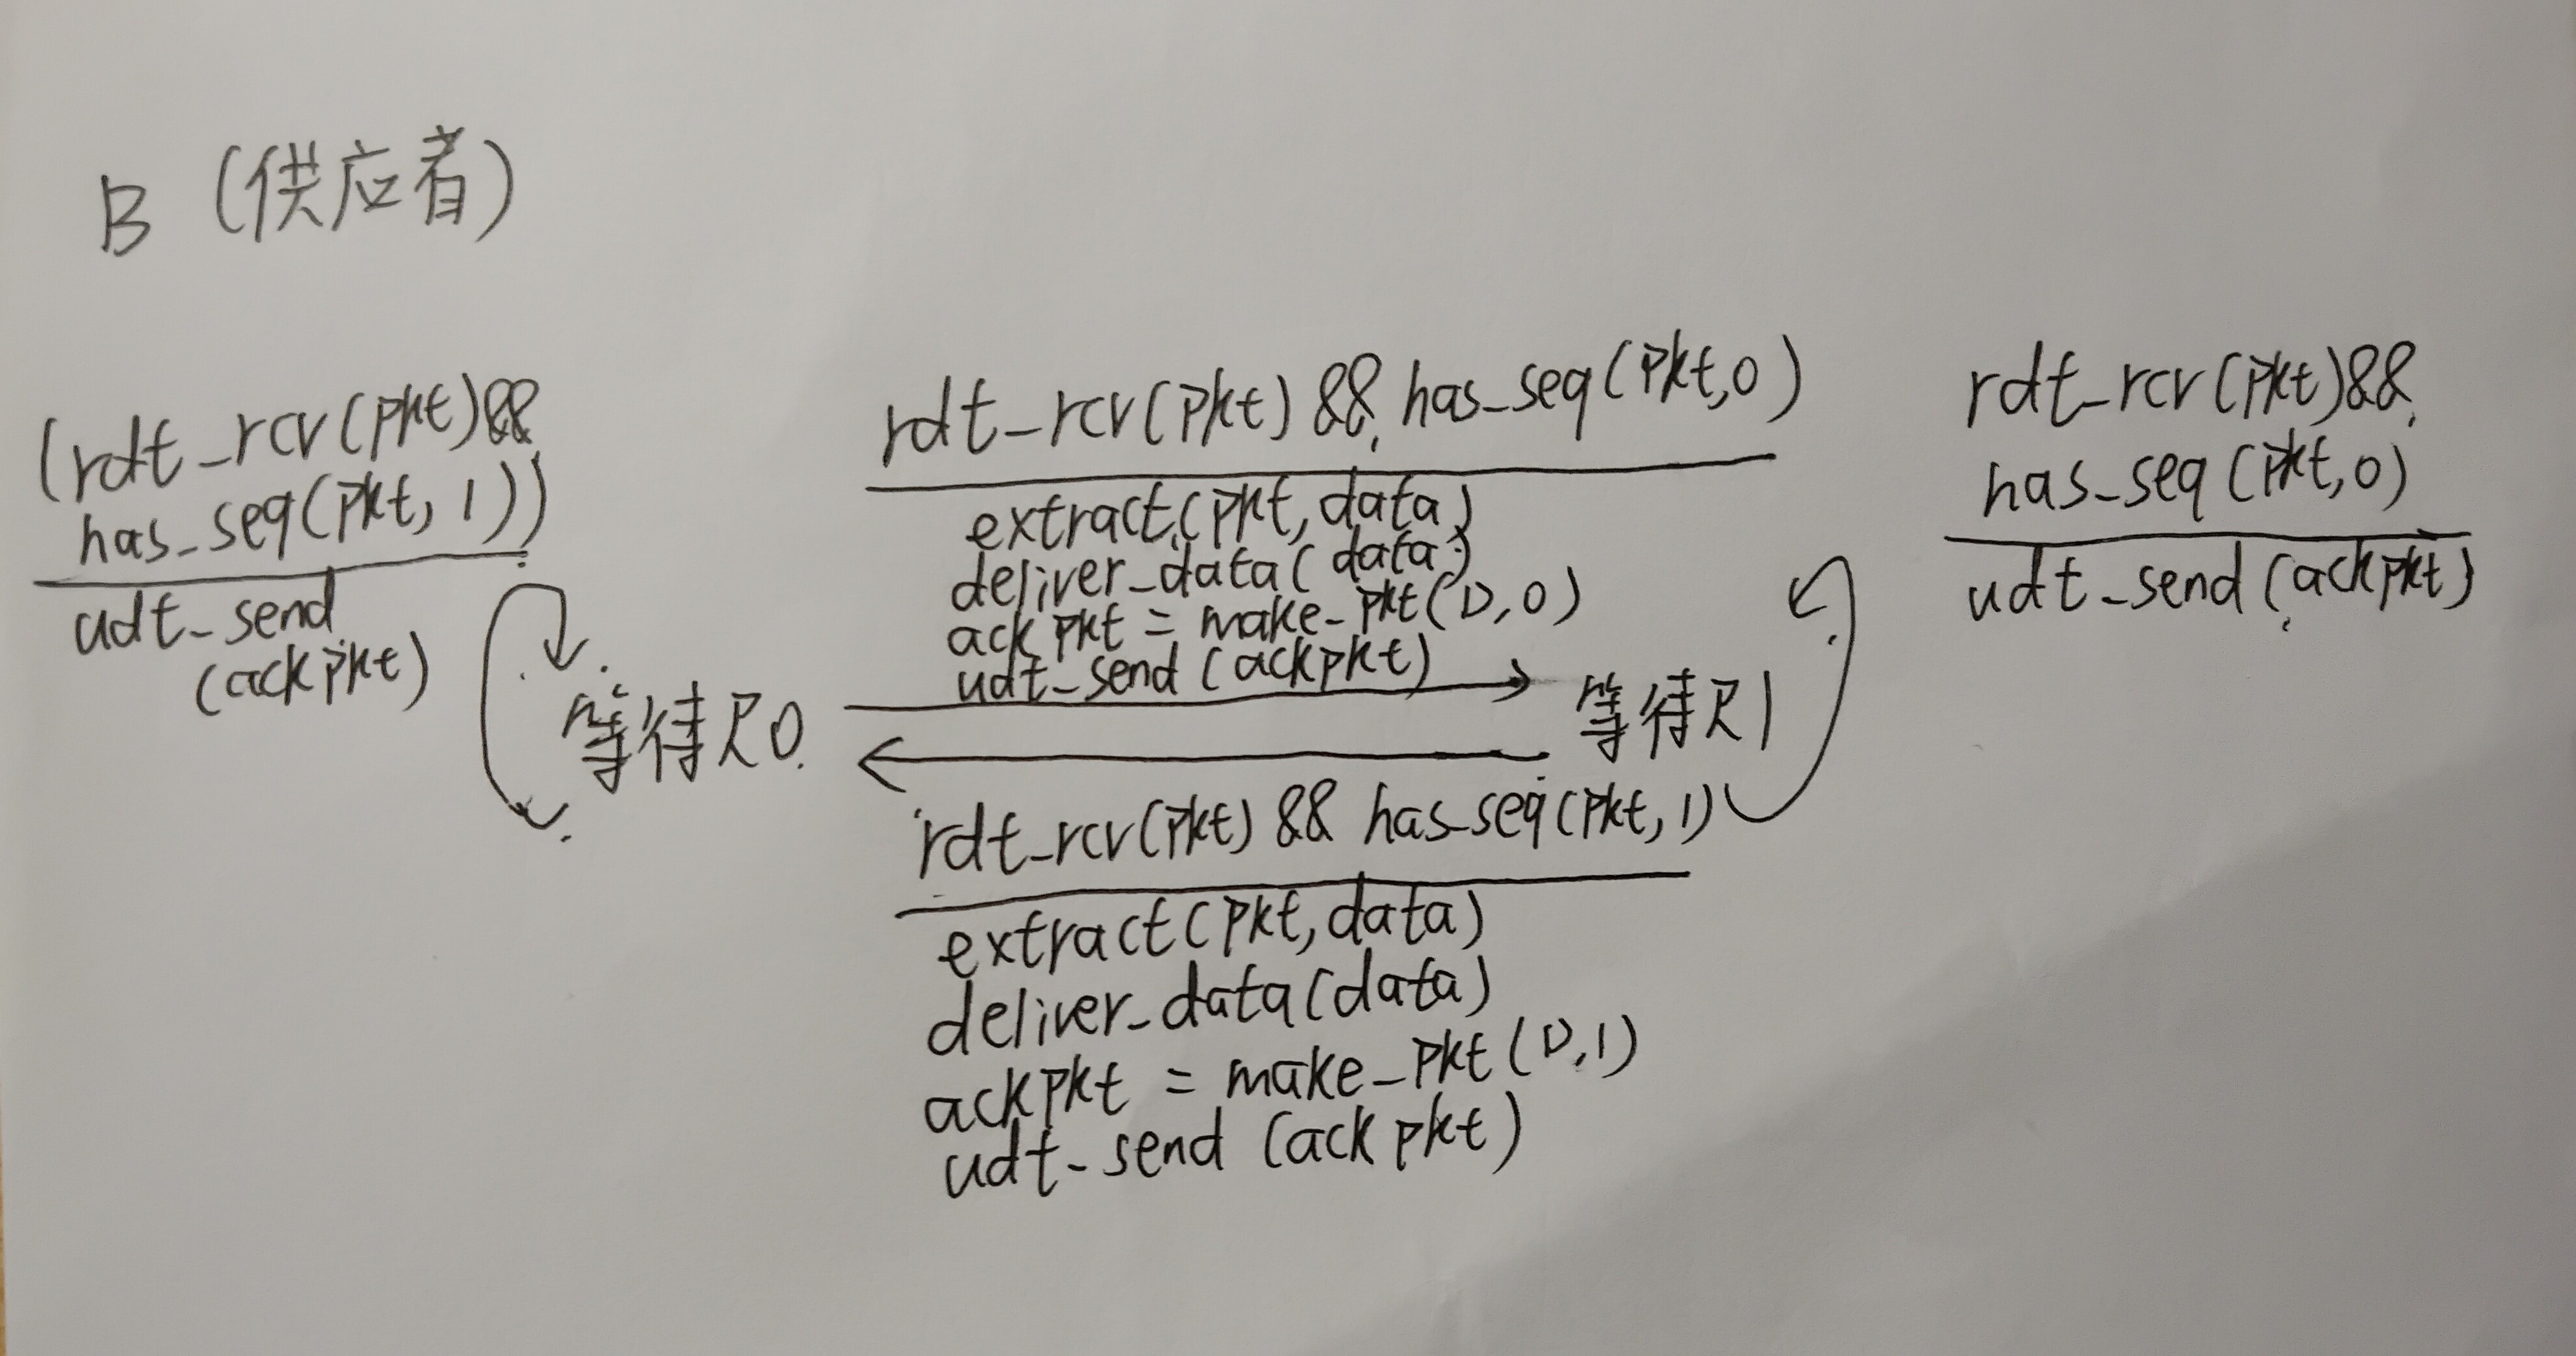 B (供应者)
(rdt_rcv(pkt)&&
has_seq(pkt,1))
udt_send
(ackpkt)
rdt_rcv(pkt) && has_seq(pkt,0)
extract(pkt,data)
deliver_data(data)
ackpkt = make_pkt(D,0)
udt_send(ackpkt)
rdt_rcv(pkt)&&
has_seq(pkt,0)
udt_send(ackpkt)
等待R0
等待R1
rdt_rcv(pkt) && has_seq(pkt,1)
extract(pkt,data)
deliver_data(data)
ackpkt = make_pkt(D,1)
udt_send (ackpkt)